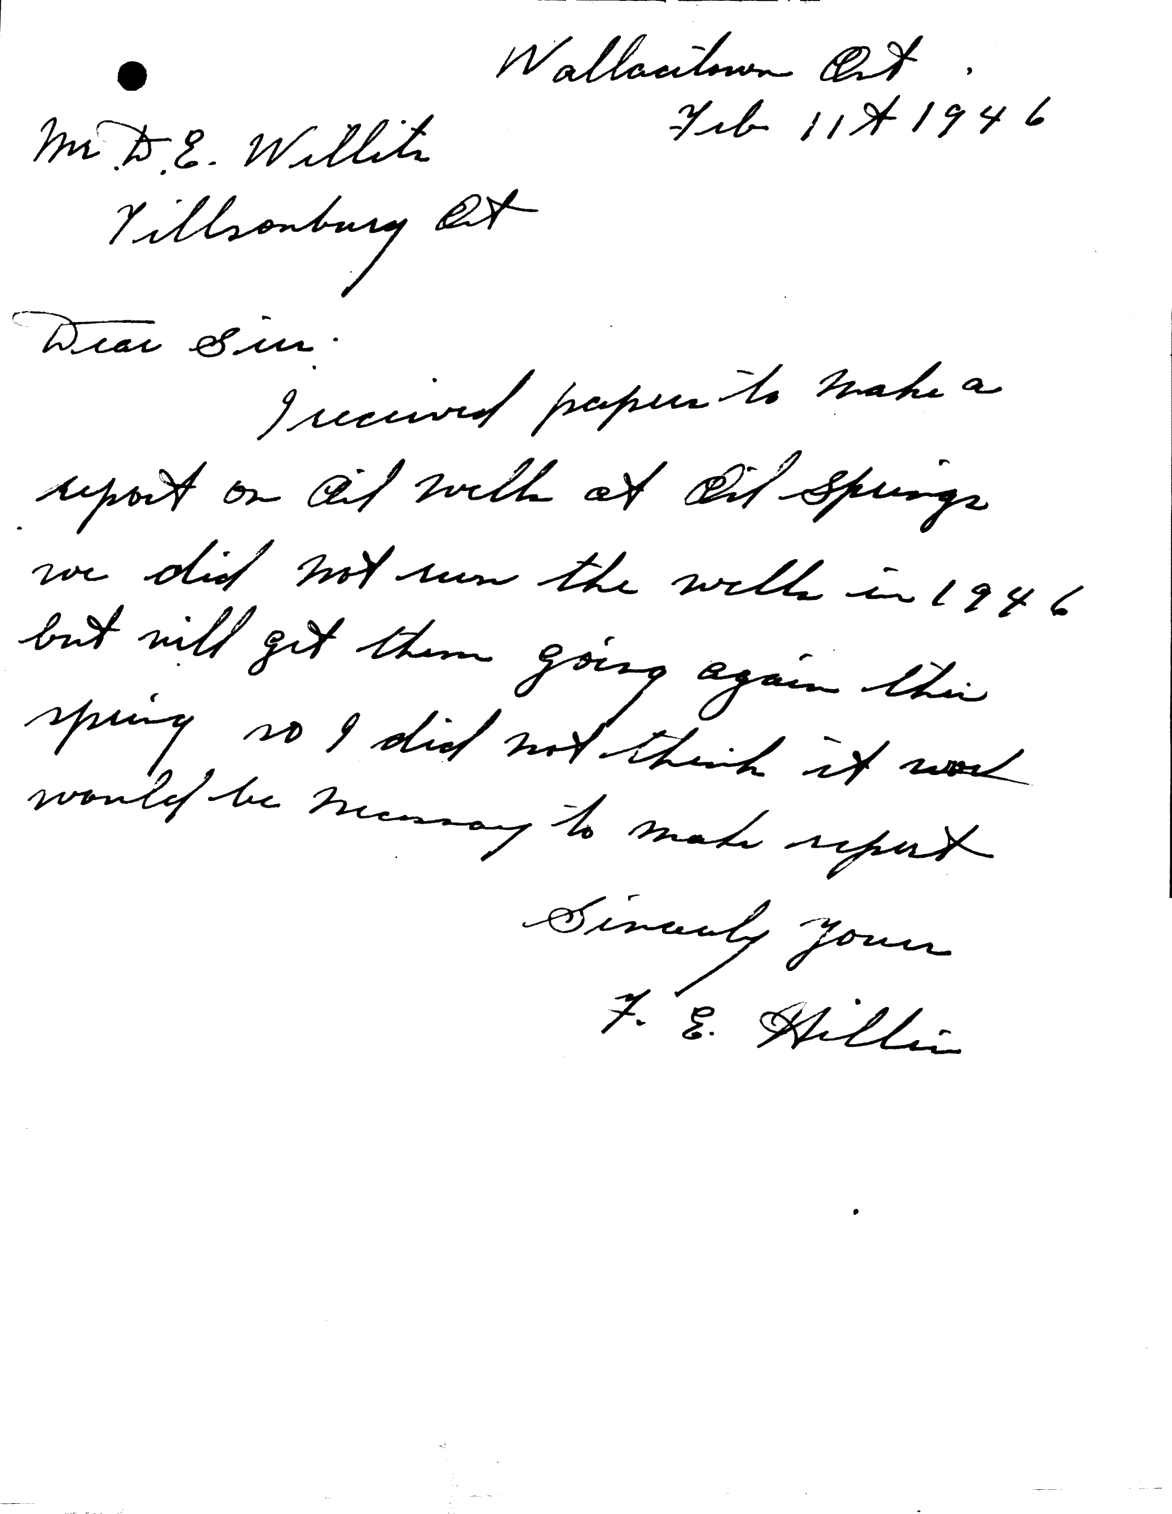 Wallacetown Ont.
Feb 11th 1946
Mr. D. E. Willits
Tillsonburg Ont
Dear Sir:
I received papers to make a
report on Oil wells at Oil Springs
we did not run the wells in 1946
but will get them going again this
spring so I did not think it
would be necessary to make report
Sincerely yours
F. E.